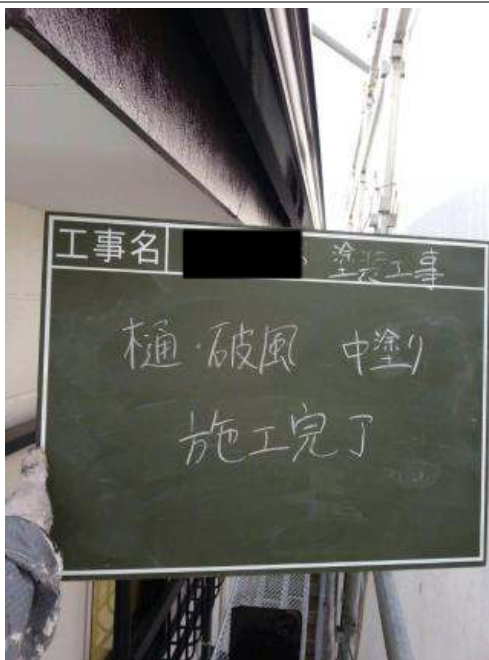 工事名 塗装工事
樋・破風 中塗り
施工完了